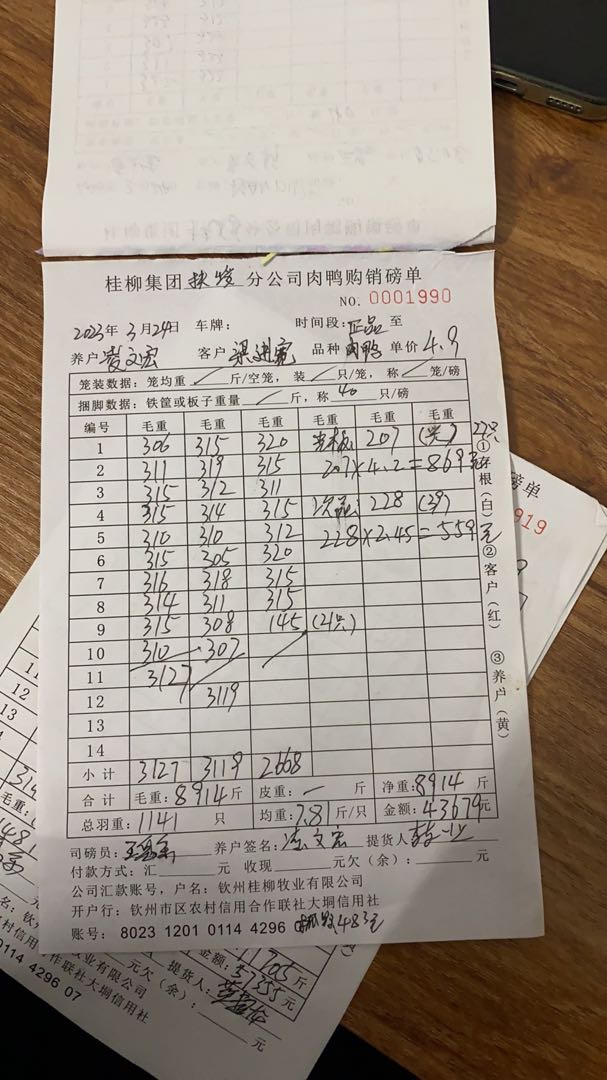 桂柳集团扶绥分公司肉鸭购销磅单
NO. 0001990
2023年3月24日 车牌： 时间段：正品至
养户 凌文宏 客户 梁进宽 品种 肉鸭 单价 4.9
笼装数据：笼均重 斤/空笼，装 只/笼，称 笼/磅
捆脚数据：铁筐或板子重量 斤，称 40 只/磅
编号 毛重 毛重 毛重 毛重 毛重 毛重
1 306 315 320 207
2 311 319 315 207×4.2=869元
3 315 312 311
4 315 314 315 次品 228
5 310 310 312 228×2.45=559元
6 315 305 320
7 316 318 315
8 314 311 315
9 315 308 145 (21只)
10 310 307
11 3127
12 3119
13
14
小计 3127 3119 2668
合计 毛重：8914斤 皮重：一 斤 净重：8914斤
总羽重：1141 只 均重：7.81斤/只 金额：43679元
司磅员： 养户签名：凌文宏 提货人
付款方式：汇 元 收现 元欠（余）： 元
公司汇款账号，户名：钦州桂柳牧业有限公司
开户行：钦州市区农村信用合作联社大垌信用社
账号： 8023 1201 0114 4296 0
483元
①存根（白）②客户（红）③养户（黄）
磅单
919
11
12
13
14
金额：
53355元
牧业有限公司
作联社大垌信用社
元欠（余）： 元
提货人：
4 4296 07